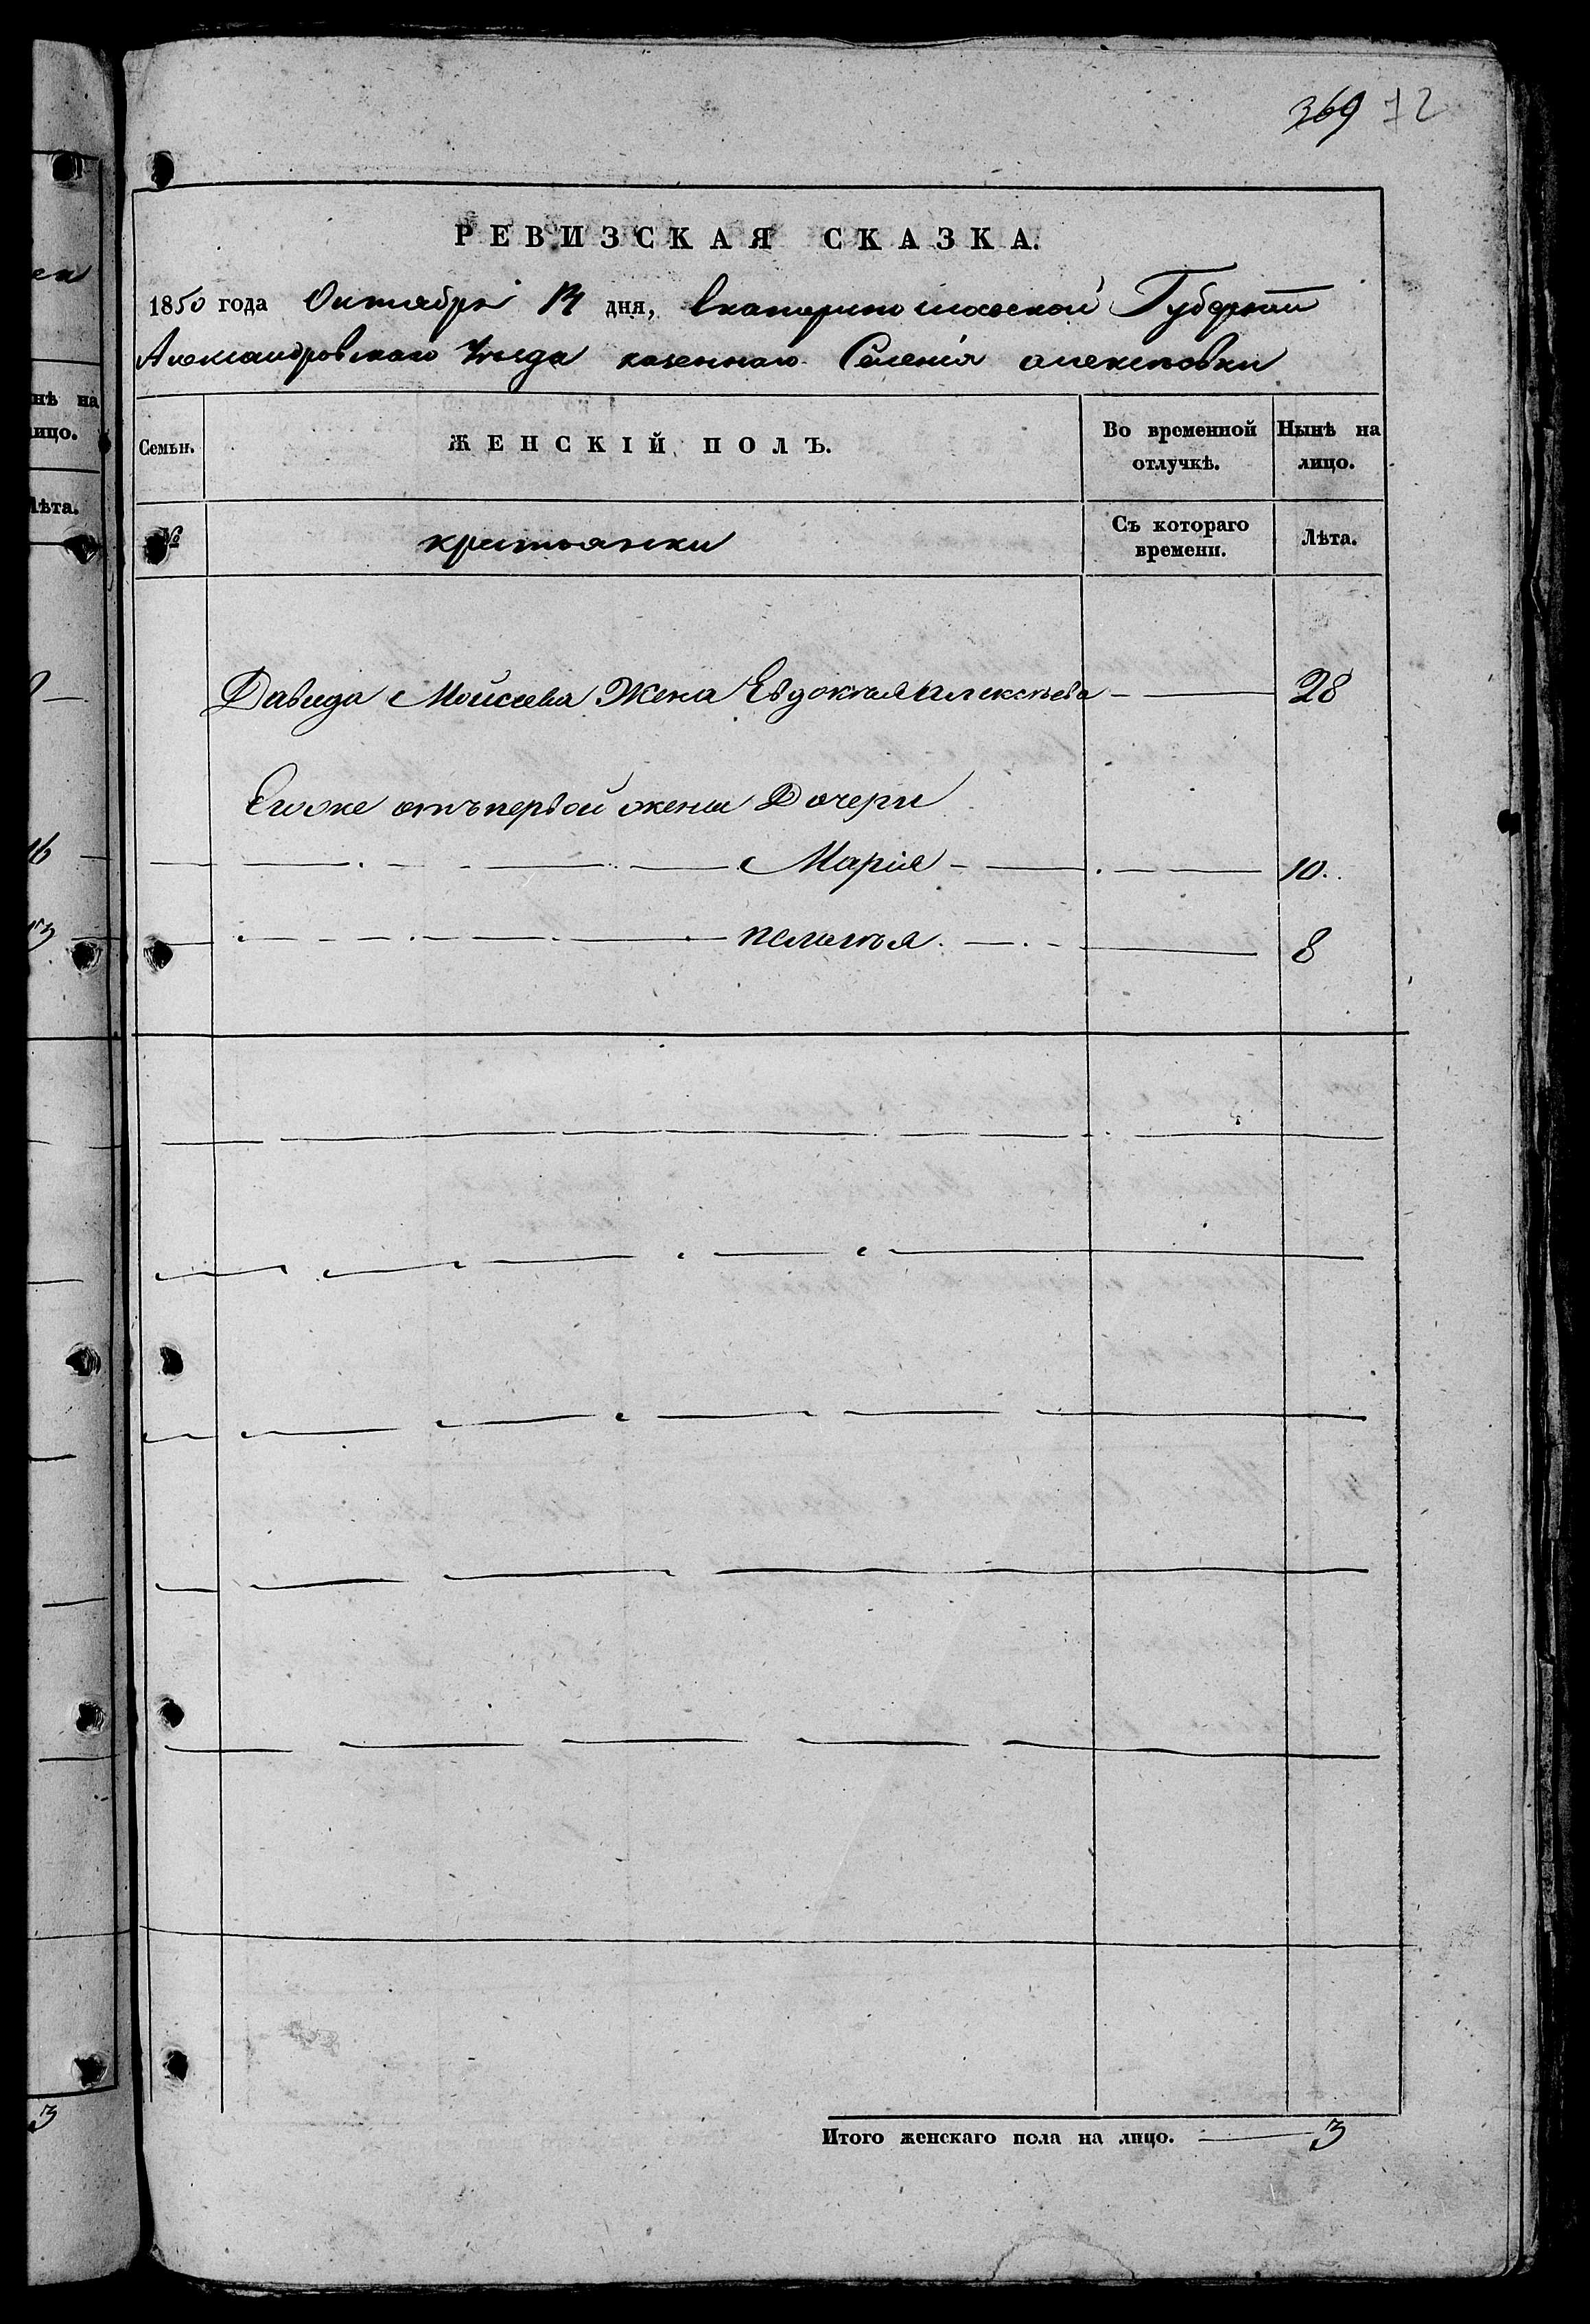 369 72
РЕВИЗСКАЯ СКАЗКА.
1850 года Октября дня, Екатеринославской Губернии
Александровскаго Уезда казеннаго Селенія алексеовки
Семьи.
ЖЕНСКІЙ ПОЛЪ.
Во временной отлучкѣ.
Нынѣ на лицо.
№
крестьянки
Съ котораго времени.
Лѣта.
Давида Моисеева Жена Евдокия Алексѣева — 28
Егоже отъ первой жены Дочери
Марія — 10.
пелагея — 8
Итого женскаго пола на лицо. — 3
нѣ на
ицо.
Лѣта.
3